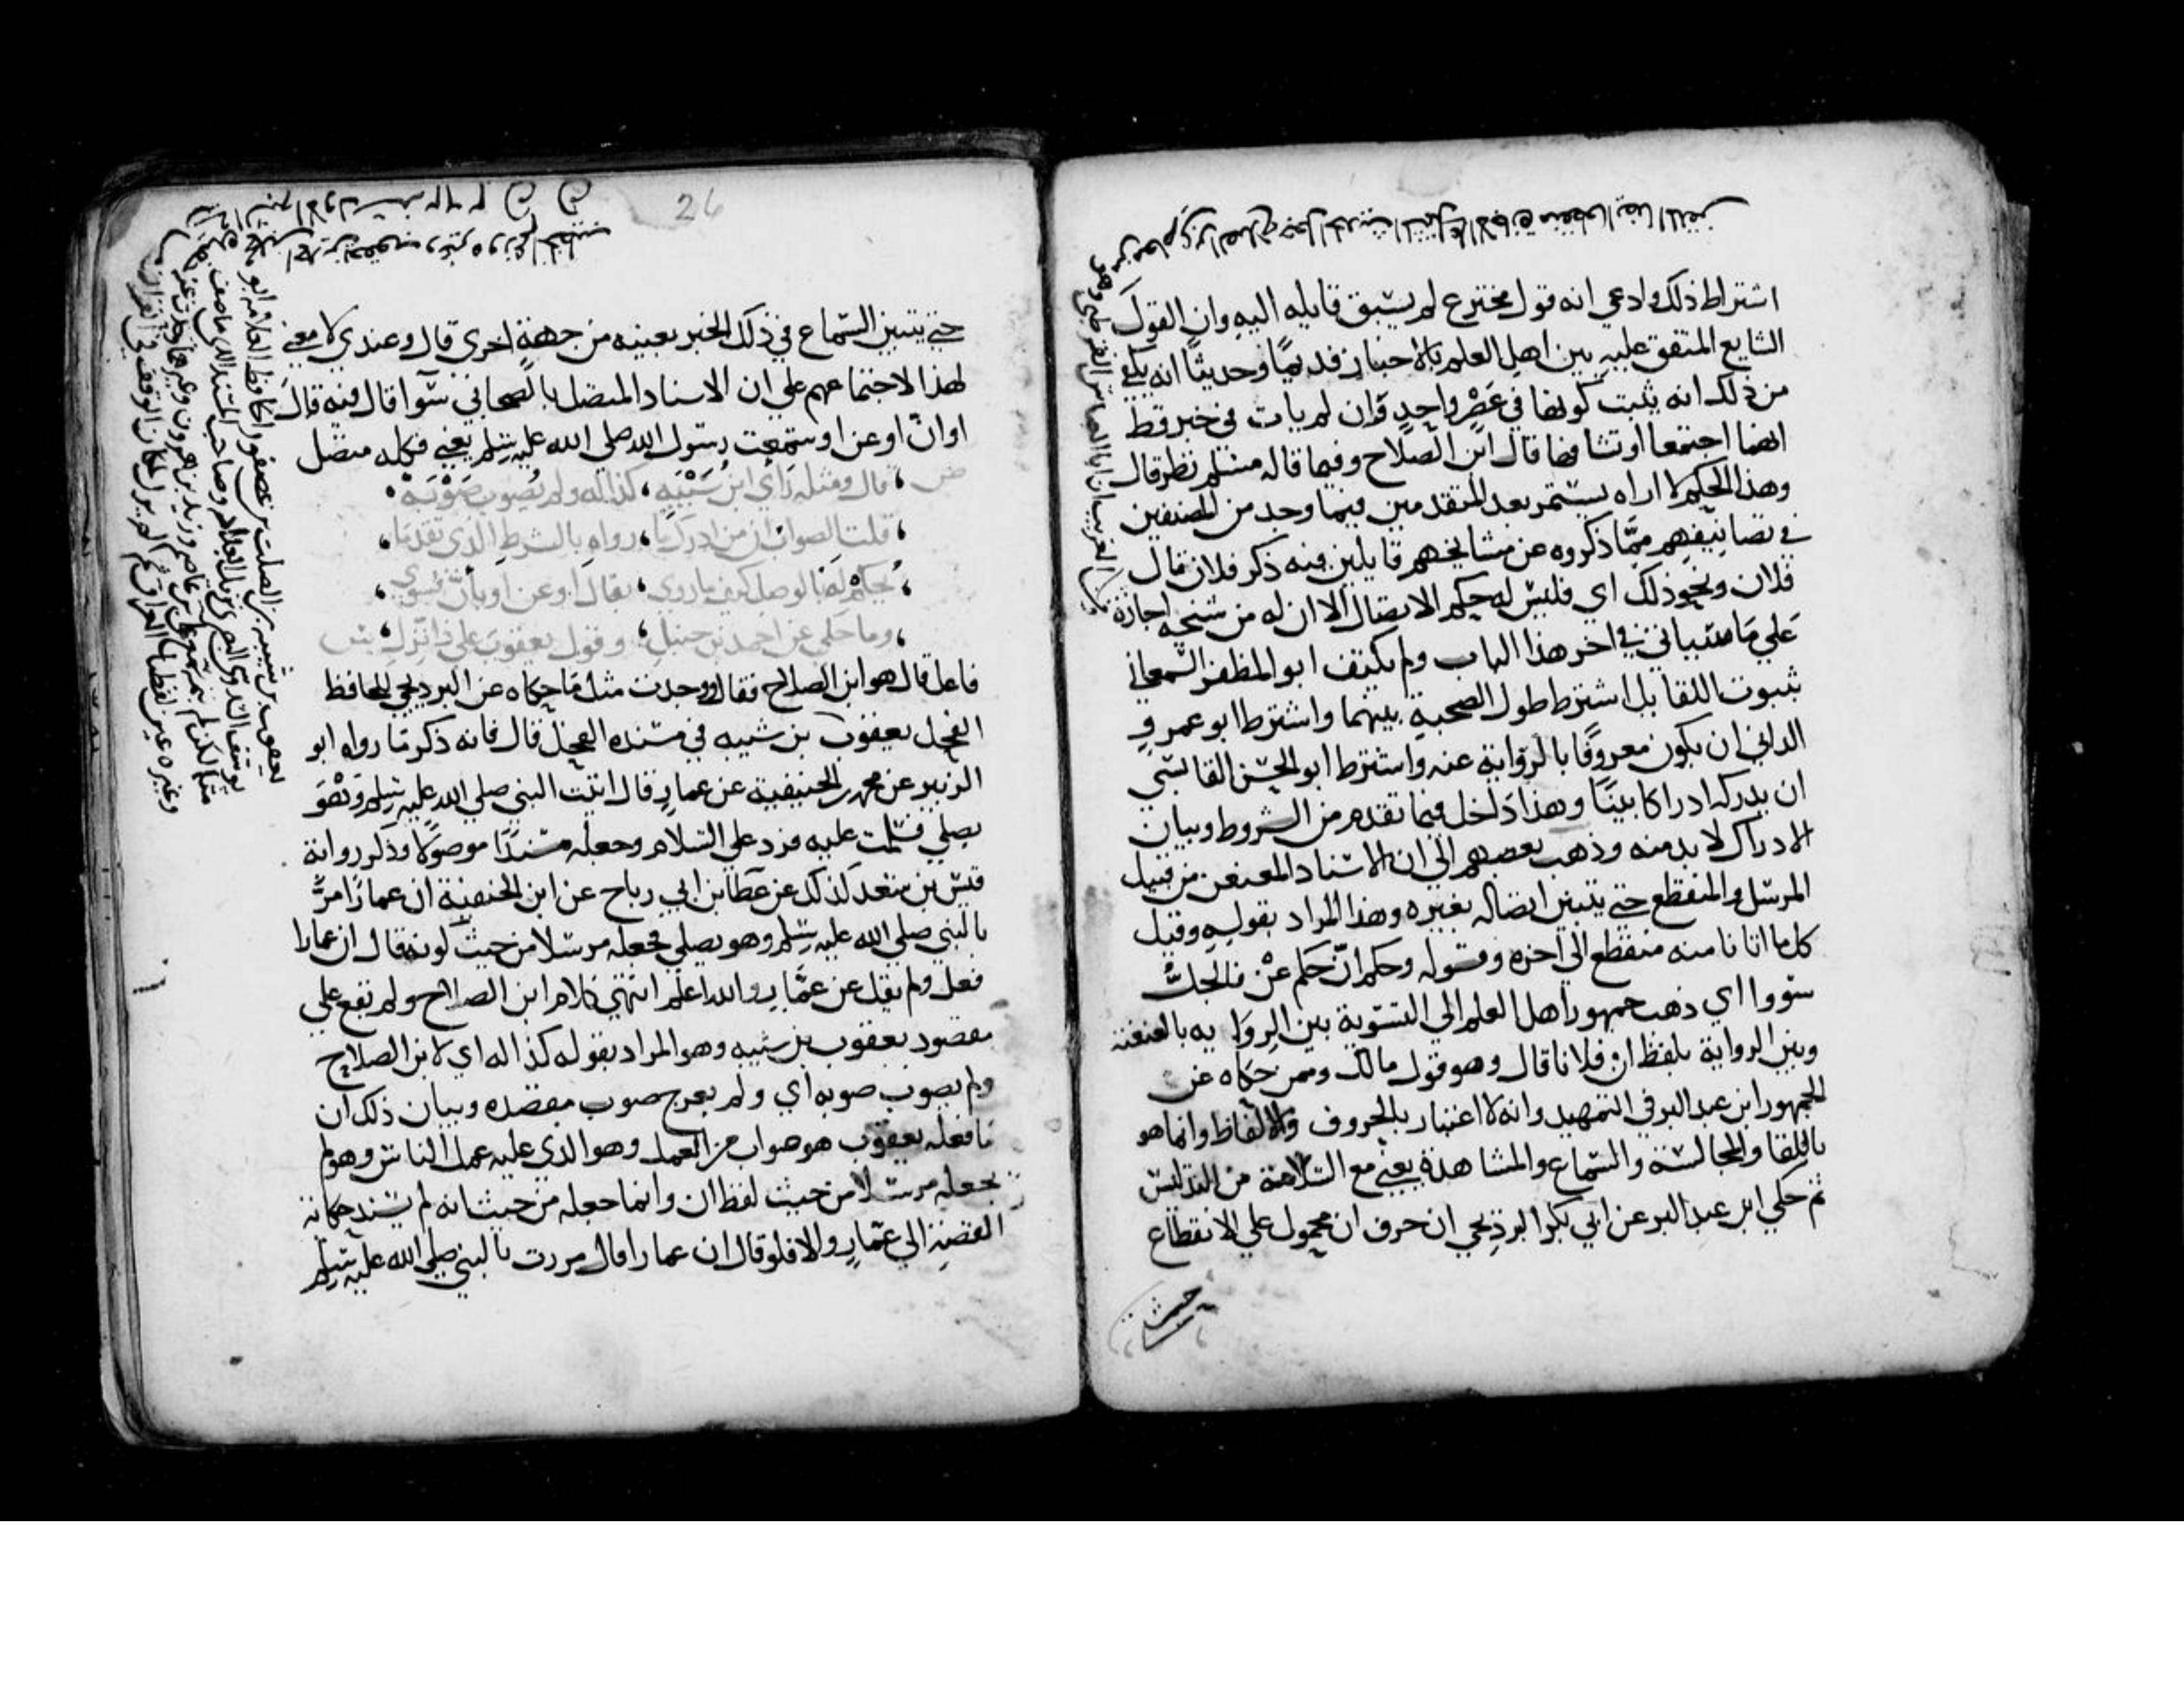 اشتراط ذلك وادعي انه قول مخترع لم يسبق قايله اليه وان القول
الشايع المتفق عليه بين اهل العلم بالاخبار قديمًا وحديثًا انه يكفي
من ذلك انه يثبت كونهما في عَصْرٍ واحدٍ وان لم يات في خبر قط
انهما اجتمعا او تشافها قال ابن الصلاح وفيما قاله مسلم نظر قال
وهذا الحكم لا اراه يستمر بعد المتقدمين فيما وجد من المصنفين
في تصانيفهم ممّا ذكروه عن مشايخهم قايلين فيه ذكر فلان قال
فلان ونحو ذلك اي فليس له حكم الاتصال الا ان له من شيخه اجازة
علي ما سياتي في اخر هذا الباب ولم يكتف ابو المظفر السمعاني
بثبوت اللقا بل اشترط طول الصحبة بينهما واشترط ابو عمرو
الداني ان يكون معروفًا بالرواية عنه واشترط ابو الحسن القابسي
ان يدركه ادراكا بينًا وهذا داخل فيما تقدم من الشروط وبيان
الادراك لا بد منه وذهب بعضهم الي ان الاسناد المعنعن من قبيل
المرسل والمنقطع حتي يتبين اتصاله بغيره وهذا المراد بقوله وقيل
كل ما اتانا منه منقطع الي اخره وقوله وحكم انّ حكم عنْ فالجلّ
سووا اي ذهب جمهور اهل العلم الي التسوية بين الروايه بالعنعنة
وبين الرواية بلفظ ان فلانا قال وهو قول مالك وممن حكاه عن
الجمهور ابن عبد البر في التمهيد وانه لا اعتبار بالحروف والالفاظ وانما هو
باللقا والمجالسة والسماع والمشاهدة يعني مع السلامة من التدليس
ثم حكي ابن عبد البر عن ابي بكر البرديجي ان حرف ان محمول علي الانقطاع
حتي
26
حتي يتبين السماع في ذلك الخبر بعينه من جهة اخري قال وعندي لا معني
لهذا لاجتماعهم علي ان الاسناد المتصل بالصحابي سوآ قال فيه قال
او انّ او عن او سمعت رسول الله صلي الله عليه وسلم يعني فكله متصل
قال ومثله رَاي ابن شَيْبَه، كذا له ولم يُصوب صَوْبَهْ
قلت الصواب ان من ادرك ما، رواه بالشرط الذي تقدما،
يُحكمْ له بالوصل كيف ما روي، بقال او عن او بأنّ فسوي
وما حكي عن احمد بن حنبل، وقول يعقوب علي ذا نَزِّل
فاعل قال هو ابن الصلاح فقال ووجدت مثل ما حكاه عن البرديجي للحافظ
الفحل يعقوب بن شيبه في مسنده الفحل قال فانه ذكر ما رواه ابو
الزبير عن محمد بن الحنيفية عن عمارٍ قال اتيت النبي صلي الله عليه وسلم وَهُوَ
يصلي فسلمت عليه فرد علي السلام وجعله مسندًا موصولا وذكر رواية
قيس بن سعد لذلك عن عطا بن ابي رباح عن ابن الحنفية ان عمارًا مرَّ
بالنبي صلي الله عليه وسلم وهو يصلي فجعله مرسلا من حيث كونه قال ان عمارا
فعل ولم يقل عن عمّارٍ والله اعلم انتهي كلام ابن الصلاح ولم يقع علي
مقصود يعقوب بن شيبه وهو المراد بقوله كذا له اي لابن الصلاح
ولم يصوب صوبه اي ولم يعرج صوب مقصده وبيان ذلك ان
ما فعله يعقوب هو صواب من العمل وهو الذي عليه عمل الناس وهو لم
يجعله مرسلا من حيث لفظ ان وانما جعله من حيث انه لم يسند حكاية
القصة الي عمّارٍ والا فلو قال ان عمارا قال مررت بالنبي صلي الله عليه وسلم